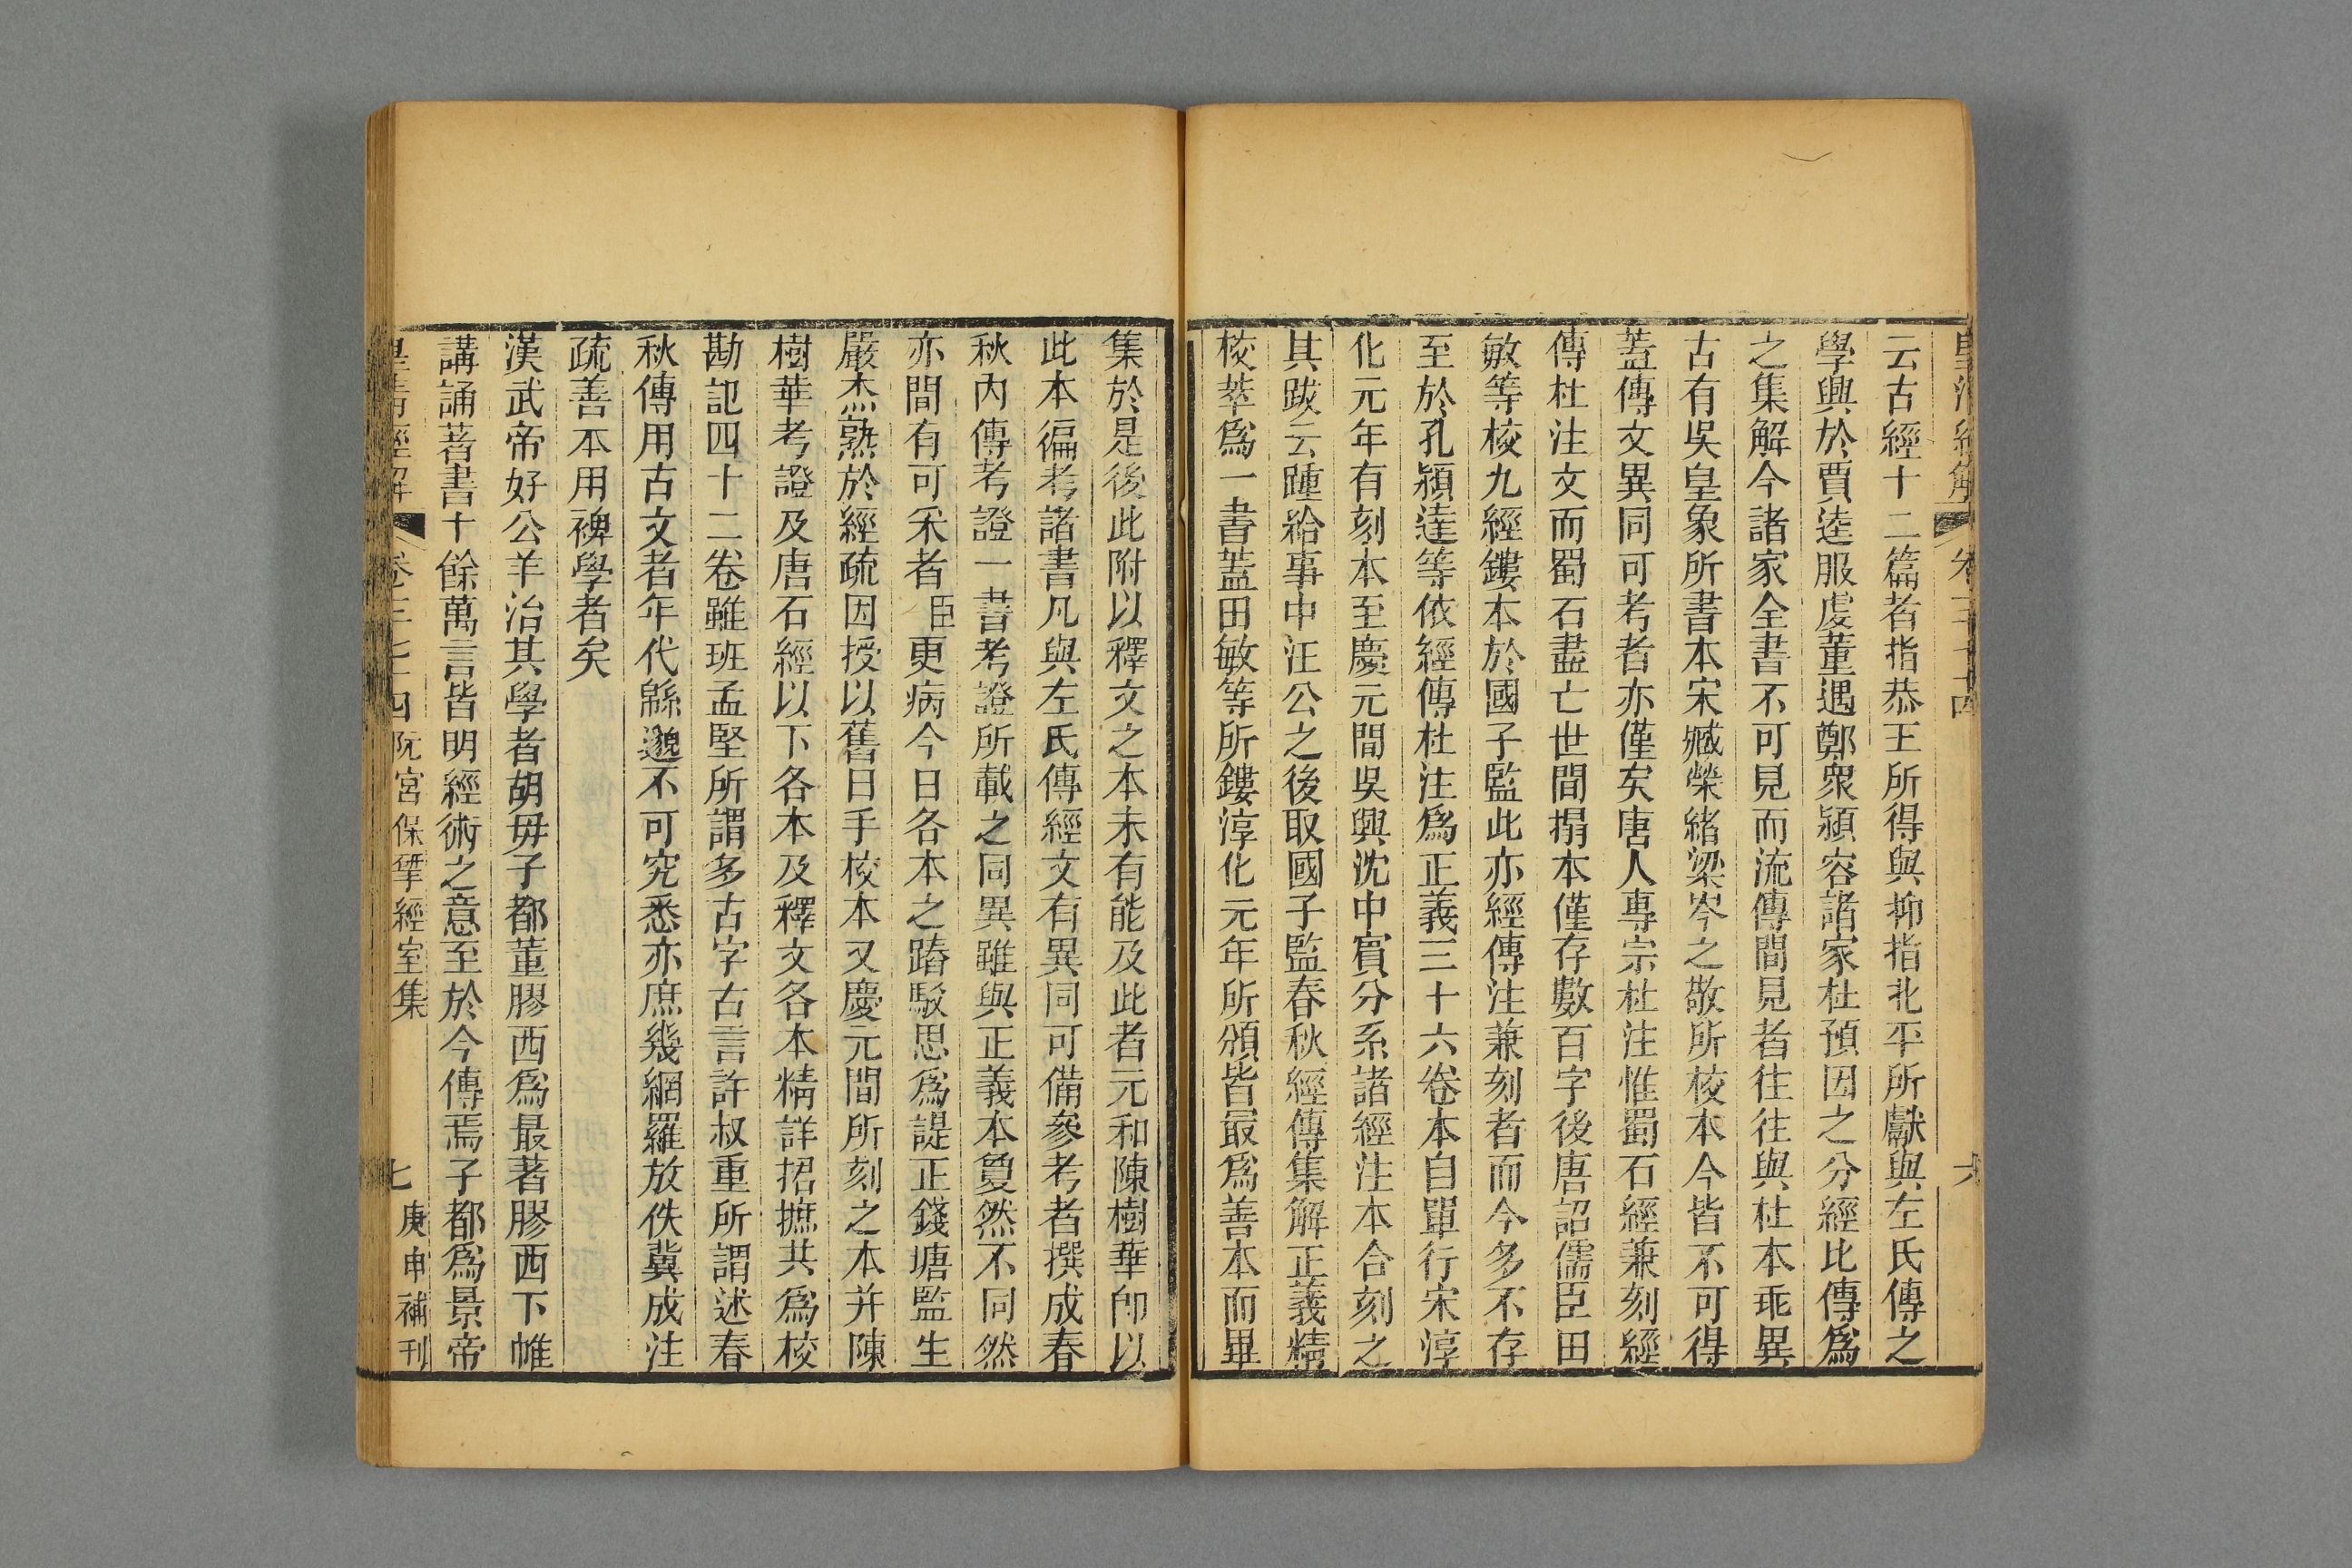 皇清經解 卷
六
云古經十二篇者指恭王所得與抑指北平所獻與左氏傳之
學興於賈逵服虔董遇鄭衆潁容諸家杜預因之分經比傳爲
之集解今諸家全書不可見而流傳間見者往往與杜本乖異
古有吳皇象所書本宋臧榮緒梁岑之敬所校本今皆不可得
蓋傳文異同可考者亦僅矣唐人專宗杜注惟蜀石經兼刻經
傳杜注文而蜀石盡亡世間搨本僅存數百字後唐詔儒臣田
敏等校九經鏤本於國子監此亦經傳注兼刻者而今多不存
至於孔穎達等依經傳杜注爲正義三十六卷本自單行宋淳
化元年有刻本至慶元間吳興沈中賓分系諸經注本合刻之
其跋云踵給事中汪公之後取國子監春秋經傳集解正義精
校萃爲一書蓋田敏等所鏤淳化元年所頒皆最爲善本而畢
集於是後此附以釋文之本未有能及此者元和陳樹華卽以
此本徧考諸書凡與左氏傳經文有異同可備參考者撰成春
秋內傳考證一書考證所載之同異雖與正義本夐然不同然
亦間有可采者臣更病今日各本之踳駮思爲諟正錢塘監生
嚴杰熟於經疏因授以舊日手校本又慶元間所刻之本并陳
樹華考證及唐石經以下各本及釋文各本精詳捃摭共爲校
勘記四十二卷雖班孟堅所謂多古字古言許叔重所謂述春
秋傳用古文者年代緜邈不可究悉亦庶幾網羅放佚冀成注
疏善本用裨學者矣
漢武帝好公羊治其學者胡毋子都董膠西爲最著膠西下帷
講誦著書十餘萬言皆明經術之意至於今傳焉子都爲景帝
皇清經解 卷 阮宮保揅經室集
七 庚申補刊